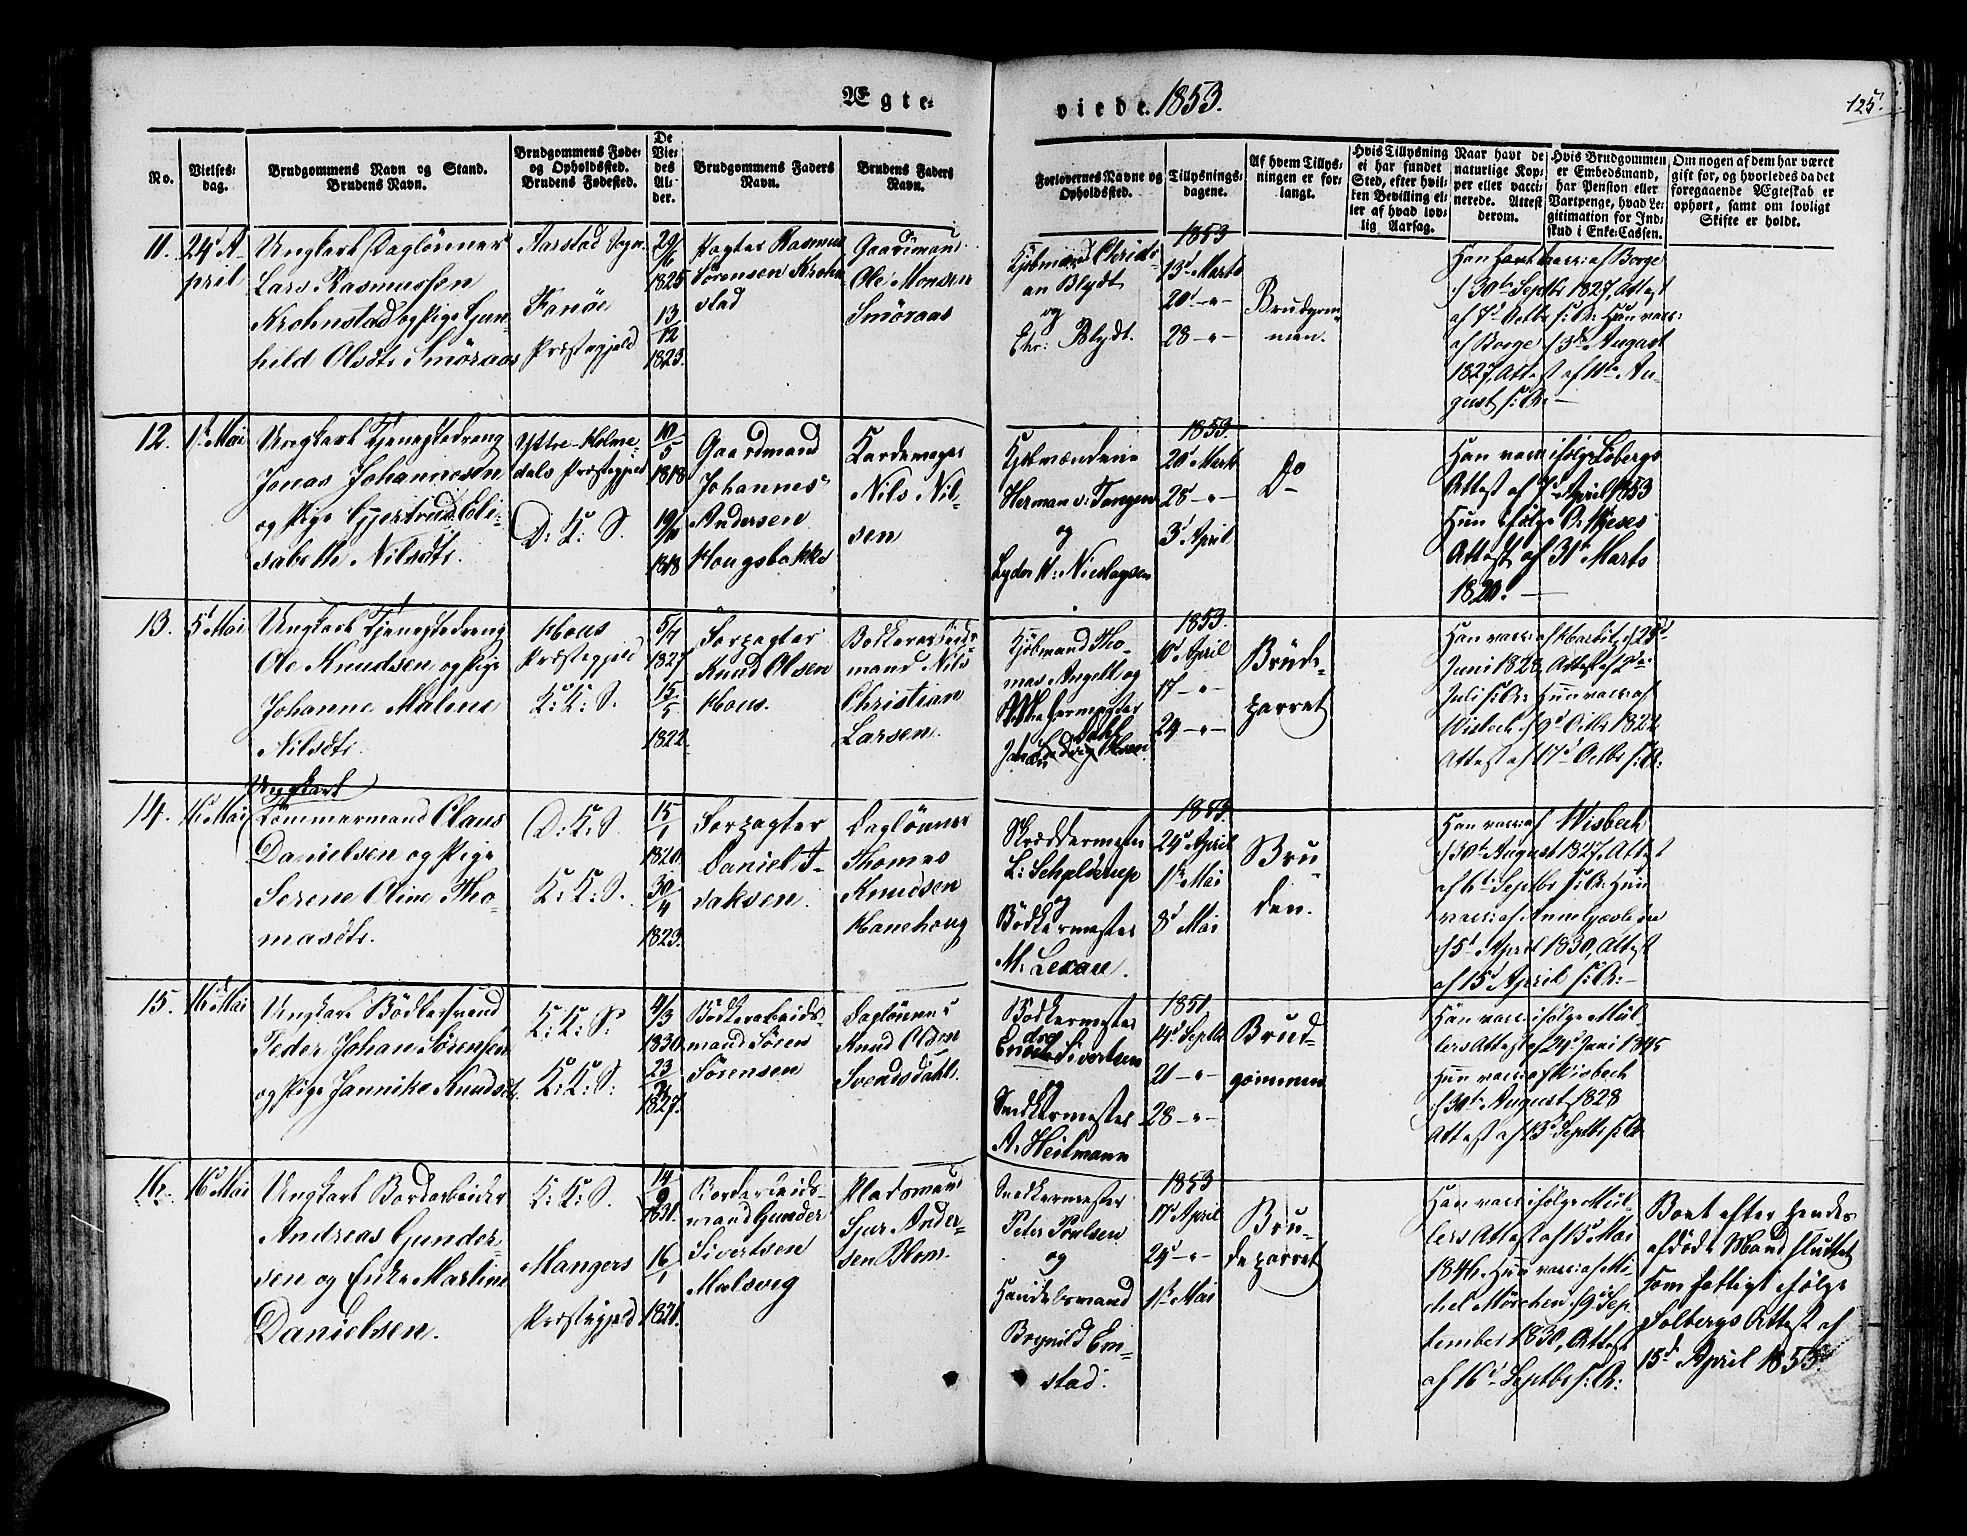 Ægte-
viede. 1853.
125.
No.
Vielses-
dag.
Brudgommens Navn og Stand.
Brudens Navn.
Brudgommens Føde-
og Opholdssted.
Brudens Fødested.
De
Vie-
des
Al-
der.
Brudgommens Faders
Navn.
Brudens Faders
Navn.
Forlovernes Navne og
Opholdssted.
Tillysnings-
dagene.
Af hvem Tillys-
ningen er for-
langt.
Hvis Tillysning
ei har fundet
Sted, efter hvil-
ken Bevilling el-
ler af hvad lov-
lig Aarsag.
Naar havt de
naturlige Kop-
per eller vacci-
nerede. Attest
derom.
Hvis Brudgommen
er Embedsmand,
har Pension eller
Vartpenge, hvad Le-
gitimation for Ind-
skud i Enke-Cassen.
Om nogen af dem har været
gift før, og hvorledes da det
foregaaende Ægteskab er
ophørt, samt om lovligt
Skifte er holdt.
11.
24d A-
pril
Ungkarl Daglönner
Lars Rasmussen
Krohnstad og Pige Gun-
hild Olsdtr Smöraas
Aarstad Sogn
Fanöe
Præstegjeld
29/6
1825
13/12
1823.
Pagter Rasmus
Sörensen Krohn
stad
Gaardmand
Ole Monsen
Smöraas
Kjöbmand Christi-
an Blydt
og
Chr: Blydt.
1853
13d Marts
20d -"-
28 -"-
Brudgom-
men.
Han vacc: af Borge
d 30te Septbr 1827, Attest
af 7d Octbr s: A: Hun vacc:
af Borge d 3die August
1827, Attest af 11te Au-
gust s: A: -
12.
1st Mai
Ungkarl Tjenestedreng
Jonas Johannesen
og Pige Gjertrud Eli-
sabeth Nilsdtr.
Ystre-Holme-
dals Præstegjeld
D: K: S.
10/5
1818
19/11
1818
Gaardmand
Johannes
Andersen
Hougsbakke
Kardemager
Nils Nil-
sen
Kjöbmændene
Herman v: Tangen
og
Lyder W: Nicolaysen
1853.
20d Marts
28 -"-
3d April
Do
Han vacc: ifølge Lobergs
Attest af 7de April 1853
Hun ifølge
Attest af 31te Marts
1820. -
13.
5d Mai
Ungkarl Tjenestedreng
Ole Knudsen og Pige
Johanne Malene
Nilsdtr.
Hous
Præstegjeld
K: K: S.
5/7
1827
15/5
1822.
Forpagter
Knud Olsen
Hous.
Bödkerarbeids-
mand Nils
Christian
Larsen.
Kjöbmand Tho-
mas Angell og
1853.
10d April
17 -"-
24 -"-
Brude-
parret
Juni 1828, Attest af 2den
Juli s: A: Hun vacc: af
Wisbech d 9d Octbr 1822
Attest af 17d Octbr s: A:
14.
16d Mai
Ungkarl
Tömmermand Claus
Danielsen og Pige
Serene Oline Tho-
masdtr.
D: K: S.
K: K: S.
15/1
1820.
30/4
1823.
Forpagter
Daniel I-
saksen.
Daglönner
Thomas
Knudsen
Hanehoug
Skræddermester
L: Schelderup
og
Bödkermester
M: Lexau.
1853.
24d April
1st Mai
8d Mai
Bru-
den.
Han vacc: af Wisbech
d 30te August 1827, Attest
af 6te Septbr s: A: Hun
vacc: af Anne
d 5d April 1830, Attest
af 15d April s: A: -
15.
16d Mai
Ungkarl Bödkersvend
Peder Johan Sörensen
og Pige Jannike Knudsdtr.
K: K: S.
K: K: S:
4/3
1830.
23/
1827.
Bödkerarbeids-
mand Sören
Sörensen
Daglönner
Knud Olsen
Svendsdahl.
Bödkermester
Sivertsen
og
Snedkermester
A: Heilmann
1851
14d Septbr
21 -"-
28 -"-
Brud-
gommen
Han vacc: ifølge Mül-
lers Attest af 24d Juni 1845
Hun vacc: af Wisbech
d 30te August 1828
Attest af 13d Septbr s: A:
16.
16d Mai
Ungkarl Bordarbeider
Andreas Gunder-
sen og Enke Martine
Danielsen.
K: K: S.
Mangers
Præstegjeld
14/9
1831.
16/1
1821.
Bordarbeids-
mand Gunder
Sivertsen
Malsvig
Pladsmand
Sjur Ander-
sen Blom.
Snedkermester
Peter Poulsen
og
Handelsmand
Brynild Em-
stad.
1853
17d April
24d -"-
1st Mai
Bru-
deparret
Han vacc: ifølge Mül-
lers Attest af 15d Mai
1846. Hun vacc: af Mi-
chel Mörchen d 9d Sep-
tember 1830, Attest
af 16d Septbr s: A:
Boet efter hendes
afdöde Mand sluttet
som fattigt ifølge
Solbergs Attest af
15d April 1853.